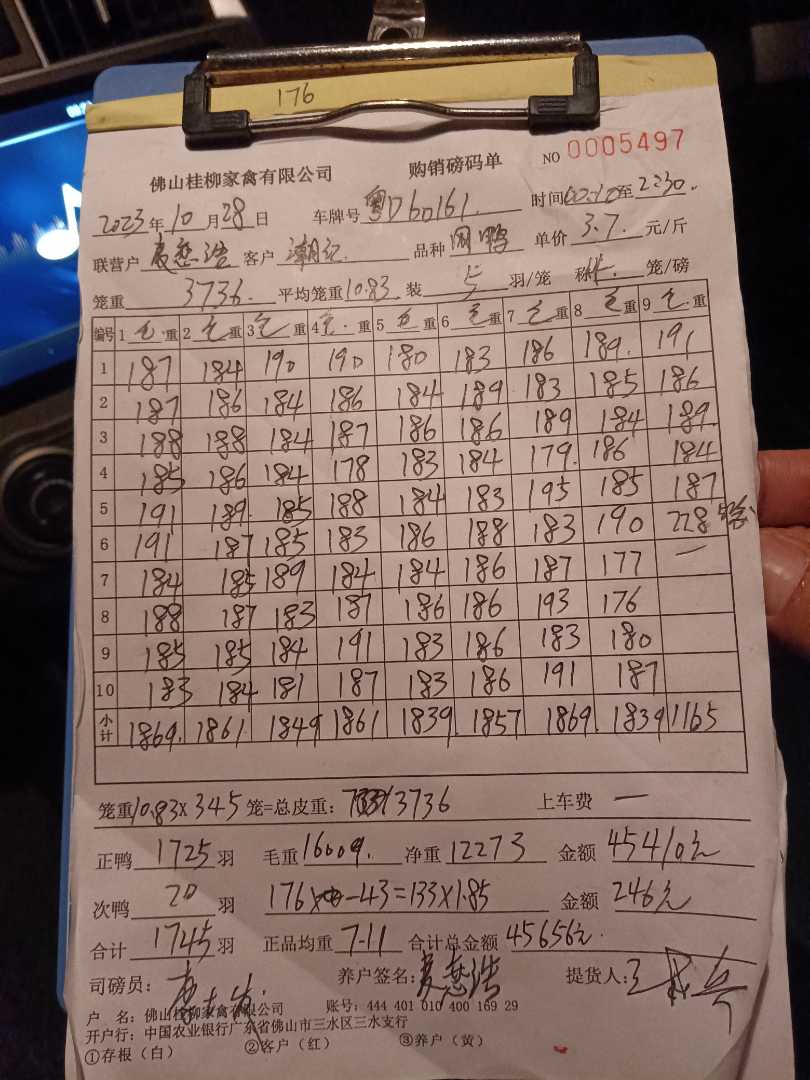 176
佛山桂柳家禽有限公司 购销磅码单 NO 0005497
2023年10月28日 车牌号 粤D60161. 时间 至 2:30.
联营户 客户 潮记. 品种 网鸭 单价 3.7. 元/斤
笼重 3736. 平均笼重10.83 装 5 羽/笼 称 笼/磅
编号 1 毛重 2 毛重 3 毛重 4 毛重 5 毛重 6 毛重 7 毛重 8 毛重 9 毛重
1 187 184 190 190 180 183 186 189. 191
2 187 186 184 186 184 189 183 185 186
3 188 188 184 187 186 186 189 184 189.
4 185 186 184 178 183 184 179. 186 184
5 191 189. 185 188 184 183 195 185 187
6 191 187 185 183 186 188 183 190 228
7 184 185 189 184 184 186 187 177 一
8 188 187 183 187 186 186 193 176
9 185 185 184 191 183 186 183 180
10 183 184 181 187 183 186 191 187
小计 1869. 1861. 1849 1861 1839. 1857 1869. 1839 1165
笼重10.83x345 笼=总皮重: 3736 上车费 一
正鸭 1725 羽 毛重 16009. 净重 12273 金额 45410元
次鸭 20 羽 176 -43=133x1.85 金额 246元
合计 1745羽 正品均重 7.11 合计总金额 45656元.
司磅员: 养户签名: 提货人:
户 名: 佛山桂柳家禽有限公司 账号: 444 401 010 400 169 29
开户行: 中国农业银行广东省佛山市三水区三水支行
①存根(白) ②客户(红) ③养户(黄)